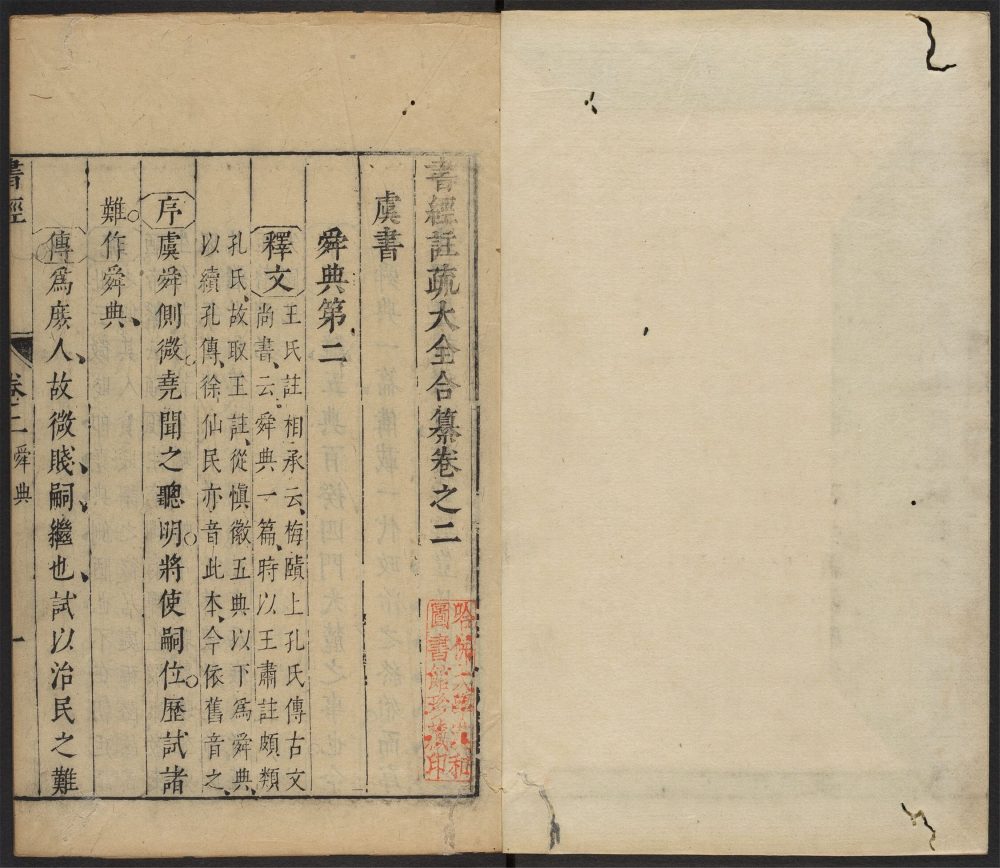 書經註疏大全合纂卷之二
虞書
舜典第二
釋文 王氏註相承云、梅頤上孔氏傳古文
尚書、云舜典一篇、時以王肅註頗類
孔氏、故取王註、從愼徽五典以下爲舜典、
以續孔傳、徐仙民亦音此本、今依舊音之、
序 虞舜側微。堯聞之聰明。將使嗣位。歷試諸
難。作舜典、
傳 爲庶人、故微賤、嗣繼也、試以治民之難
書經
卷二 舜典
一
哈佛大學漢和
圖書館珍藏印